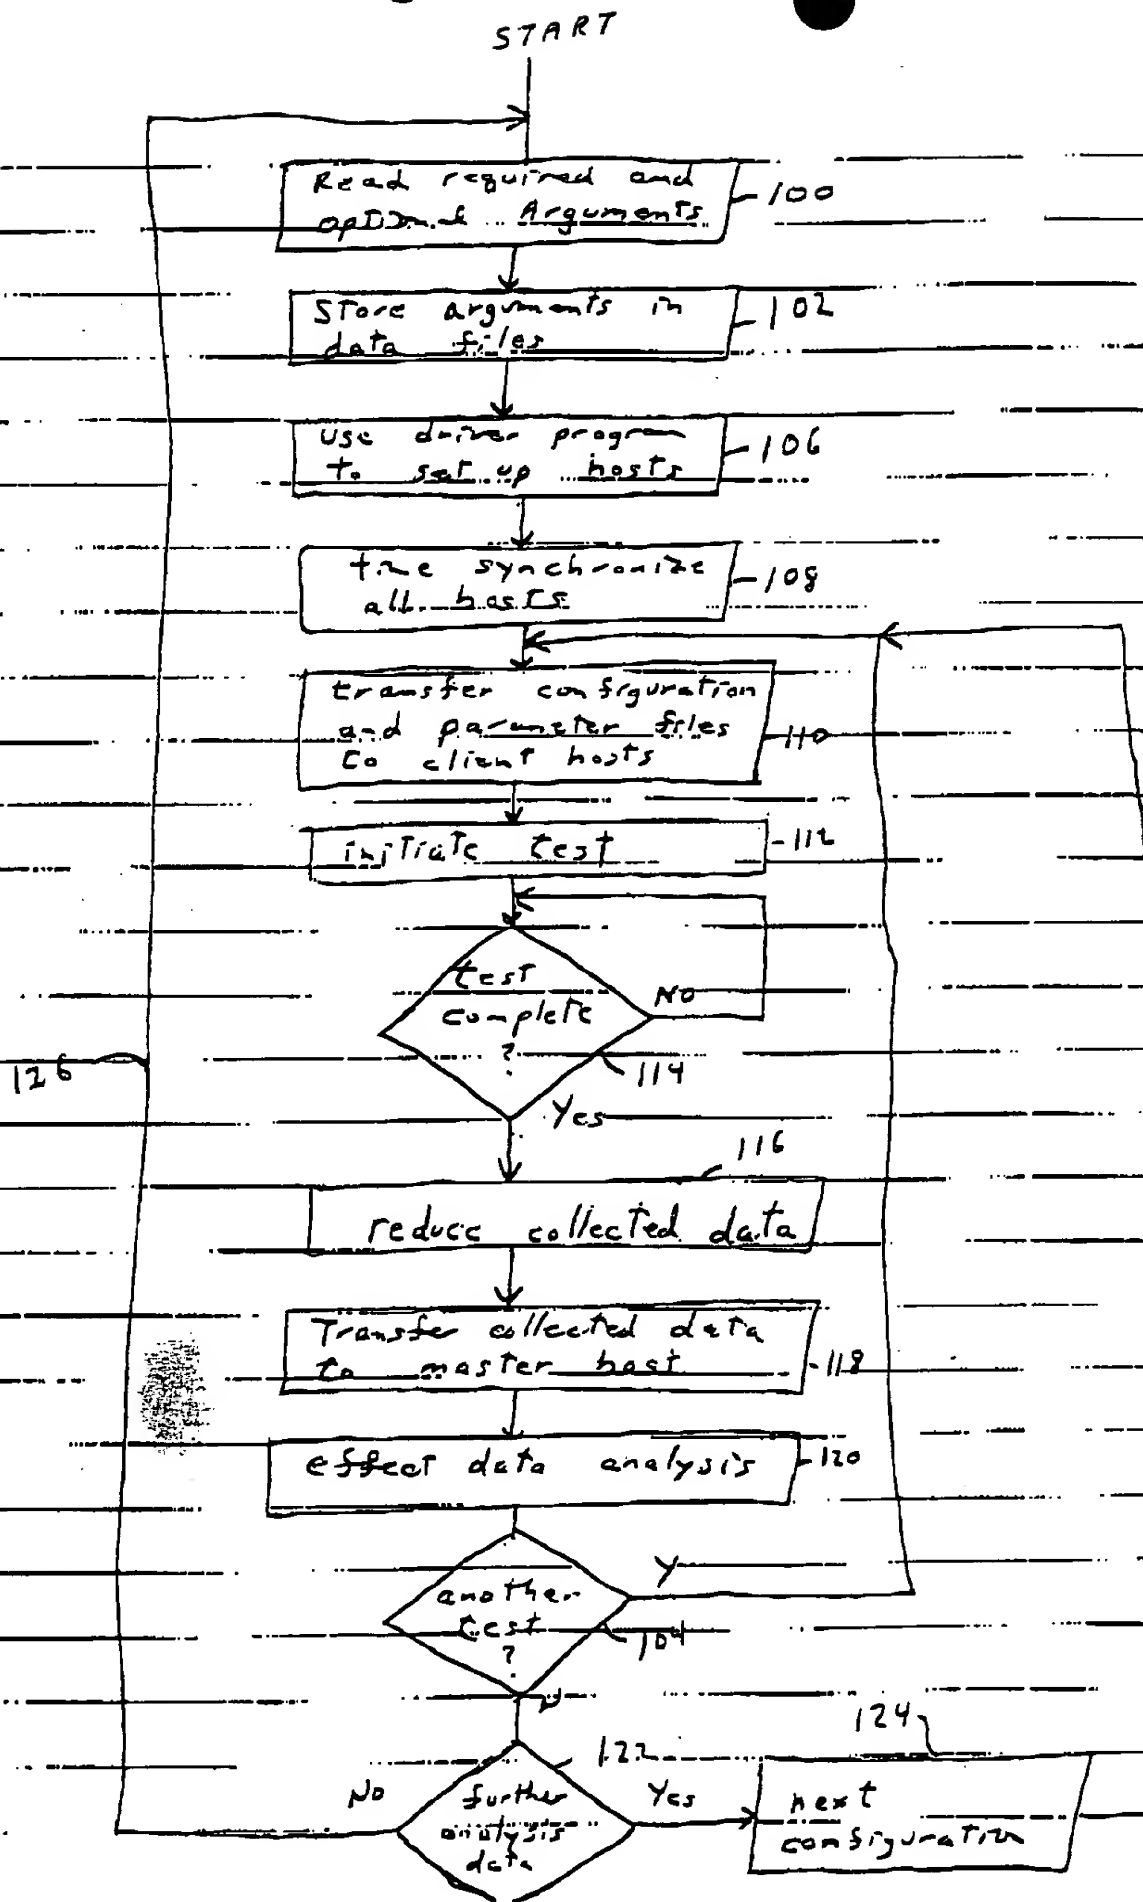 START
Read required and
optional Arguments
100
Store arguments in
data files
102
use driver program
to set up hosts
106
time synchronize
all hosts
108
transfer configuration
and parameter files
to client hosts
110
initiate test
112
test
complete
?
No
114
126
Yes
116
reduce collected data
Transfer collected data
to master host
118
effect data analysis
120
another
test
?
Y
104
N
124
122
No
further
analysis
data
Yes
next
configuration